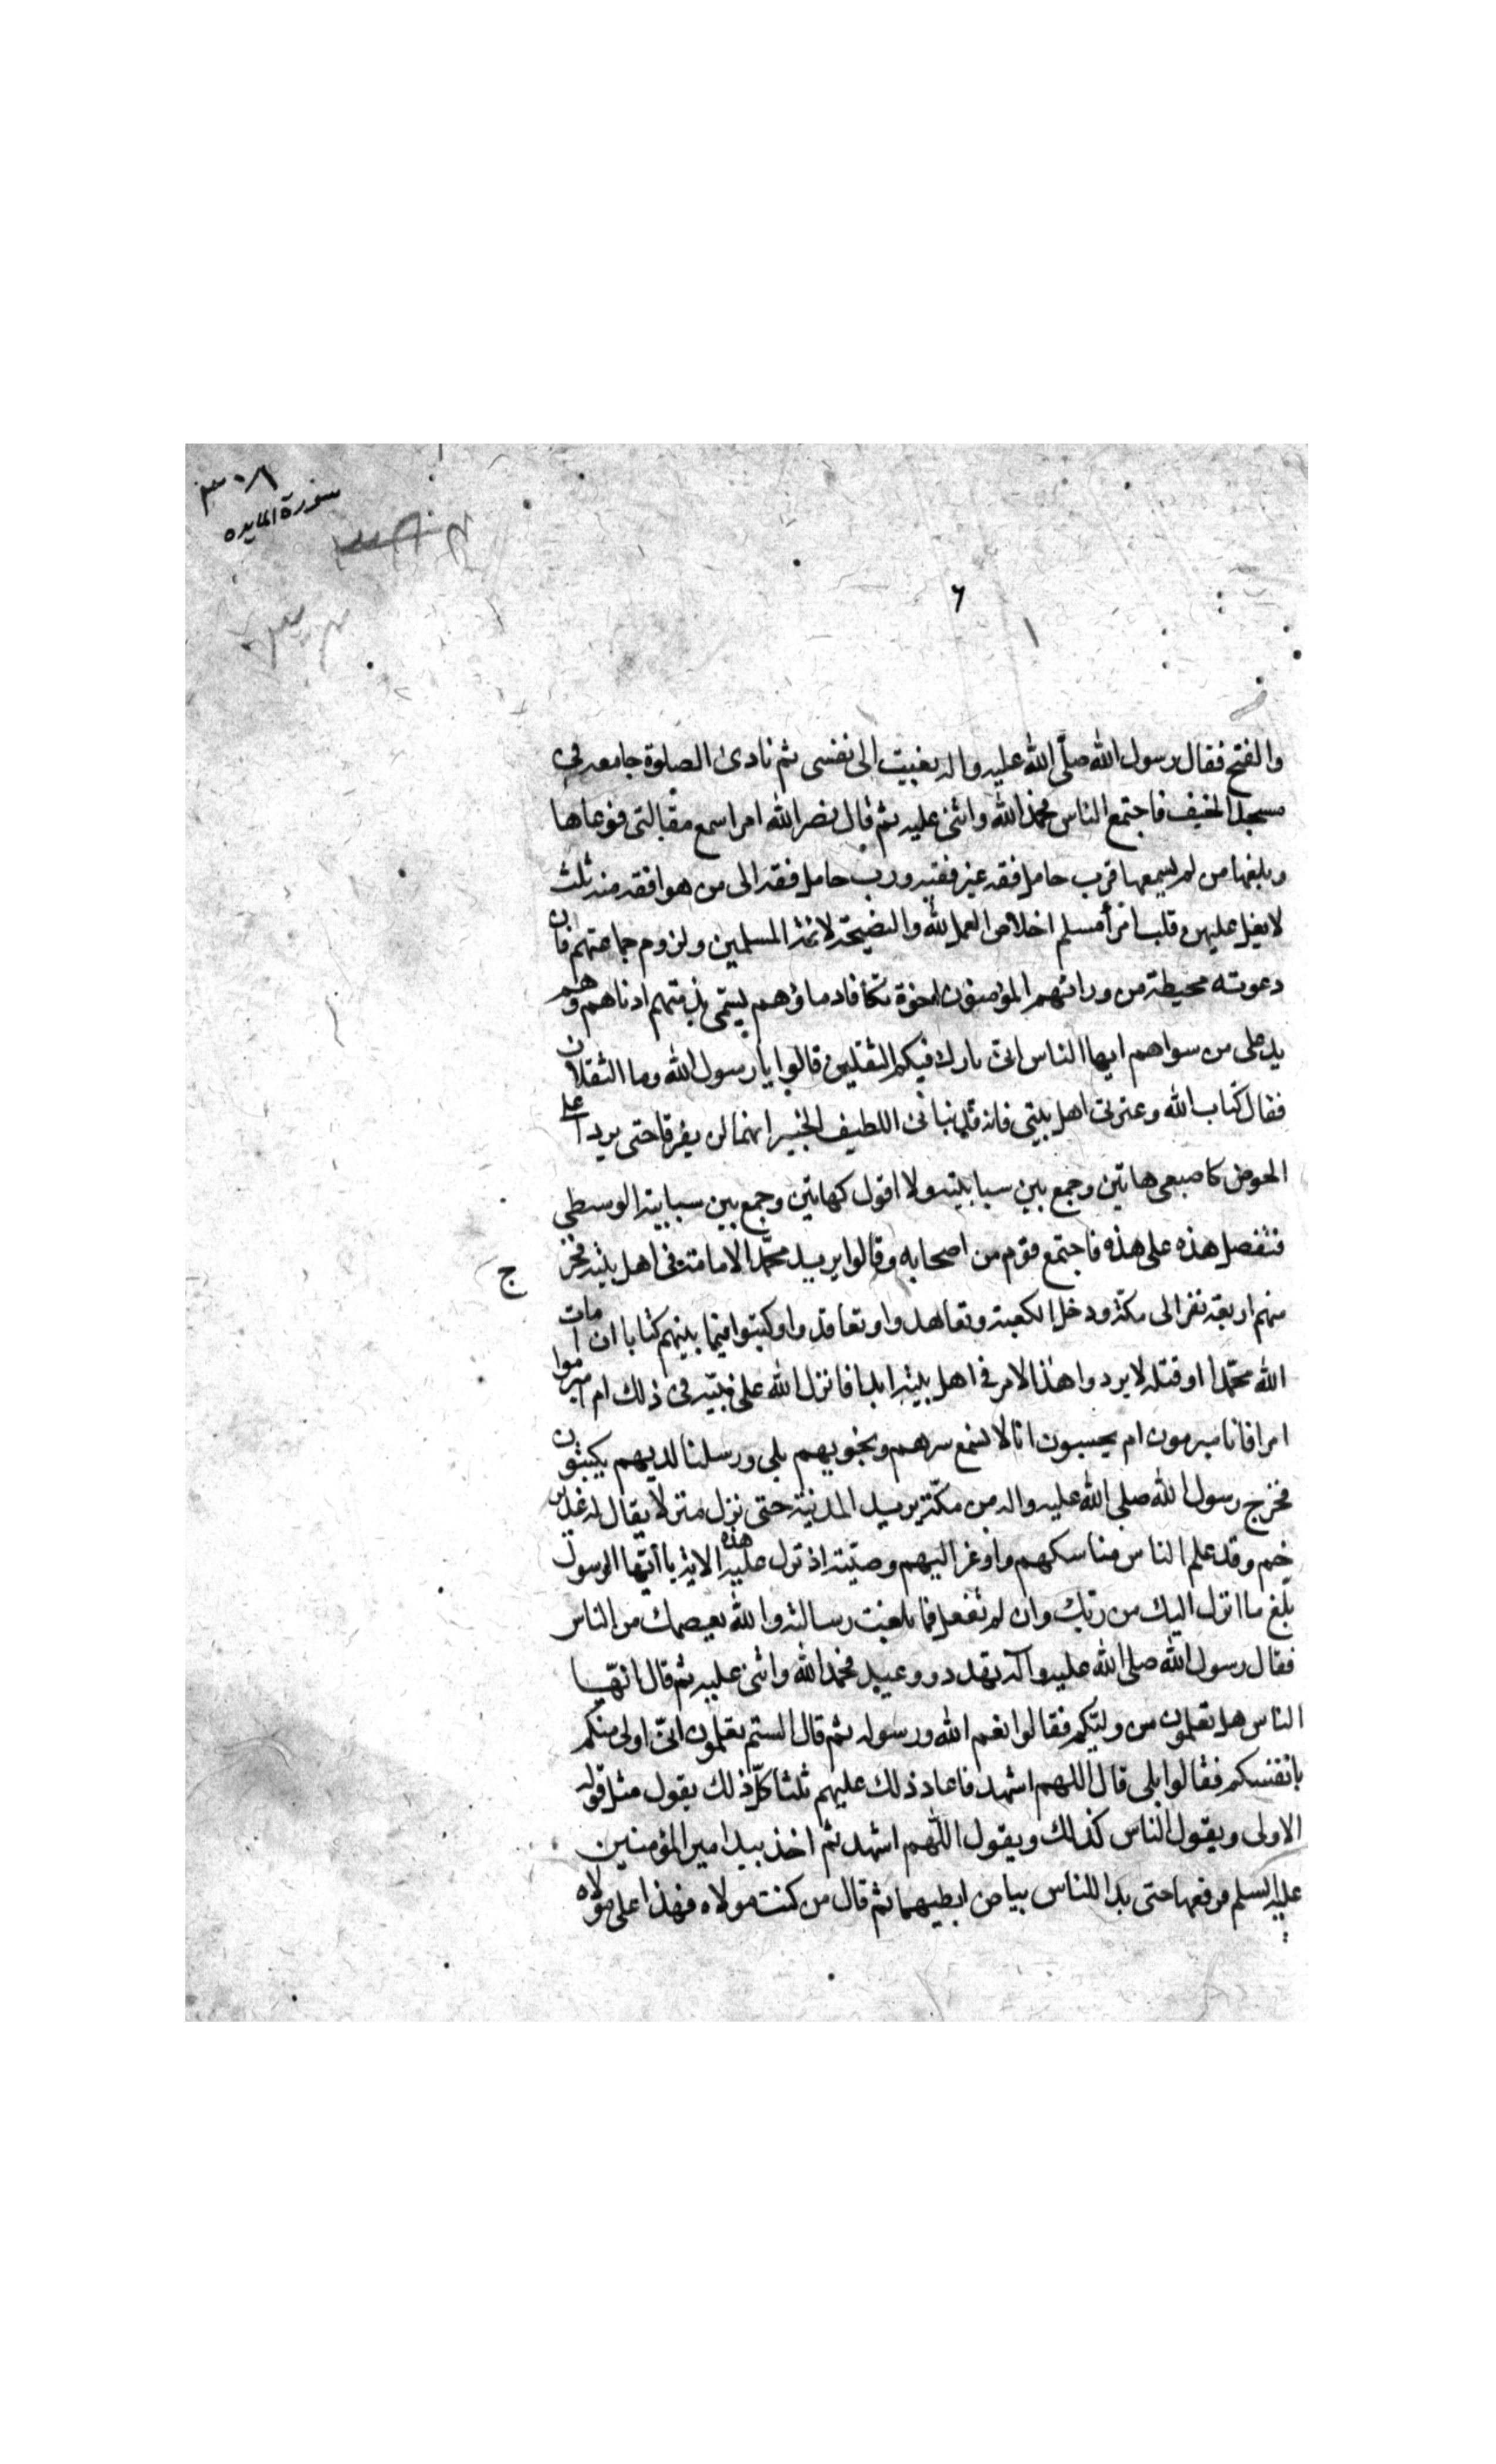 سورة المايده
٦
والفتح فقال رسول الله صلّى الله عليه واله نعيت الى نفسى ثم نادى الصلوة جامعه فى
مسجد الخيف فاجتمع الناس فحمد الله واثنى عليه ثم قال نضر الله امرا سمع مقالتى فوعاها
وبلغها من لم يسمعها فرب حامل فقه غير فقيه ورب حامل فقه الى من هو افقه منه ثلث
لا يغل عليهن قلب امرأ مسلم اخلاص العمل لله والنصيحة لائمة المسلمين ولزوم جماعتهم فان
دعوته محيطة من ورائهم المؤمنون اخوة تكافا دماؤهم يسعى بذمتهم ادناهم وهم
يد على من سواهم ايها الناس انى تارك فيكم الثقلين قالوا يا رسول الله وما الثقلان
فقال كتاب الله وعترتى اهل بيتى فانه قد نبانى اللطيف الخبير انهما لن يفرقا حتى يردا على
الحوض كاصبعى هاتين وجمع بين سبابتيه ولا اقول كهاتين وجمع بين سبابته الوسطى
فتفضل هذه على هذه فاجتمع قوم من اصحابه وقالوا يريد محمّد الامامة فى اهل بيته فخرج
منهم اربعة نفر الى مكة ودخل الكعبة وتعاهدوا وتعاقدوا وكتبوا فيما بينهم كتابا ان امات
الله محمّدا او قتله لا يردوا هذا الامر فى اهل بيته ابدا فانزل الله على نبيّه فى ذلك ام ابرموا
امرا فانا مبرمون ام يحسبون انا لا نسمع سرهم ونجويهم بلى ورسلنا لديهم يكتبون
فخرج رسول الله صلى الله عليه واله من مكّة يريد المدينة حتى نزل منزلا يقال له غدير
خم وقد علم الناس مناسكهم واوعز اليهم وصيّته اذ نزل عليه هذه الاية يا أيّها الرسول
بلّغ ما انزل اليك من ربّك وان لم تفعل فما بلغت رسالته والله يعصمك من الناس
فقال رسول الله صلى الله عليه وآله تهدد ووعيد فحمد الله واثنى عليه ثم قال ايّها
الناس هل تعلمون من وليّكم فقالوا نعم الله ورسوله ثم قال الستم تعلمون انّى اولى منكم
بانفسكم فقالوا بلى قال اللهم اشهد فاعاد ذلك عليهم ثلثا كلّ ذلك يقول مثل قوله
الاولى ويقول الناس كذلك ويقول اللّهم اشهد ثم اخذ بيد امير المؤمنين
عليه السلم فرفعها حتى بدا للناس بياض ابطيهما ثم قال من كنت مولاه فهذا على مولاه